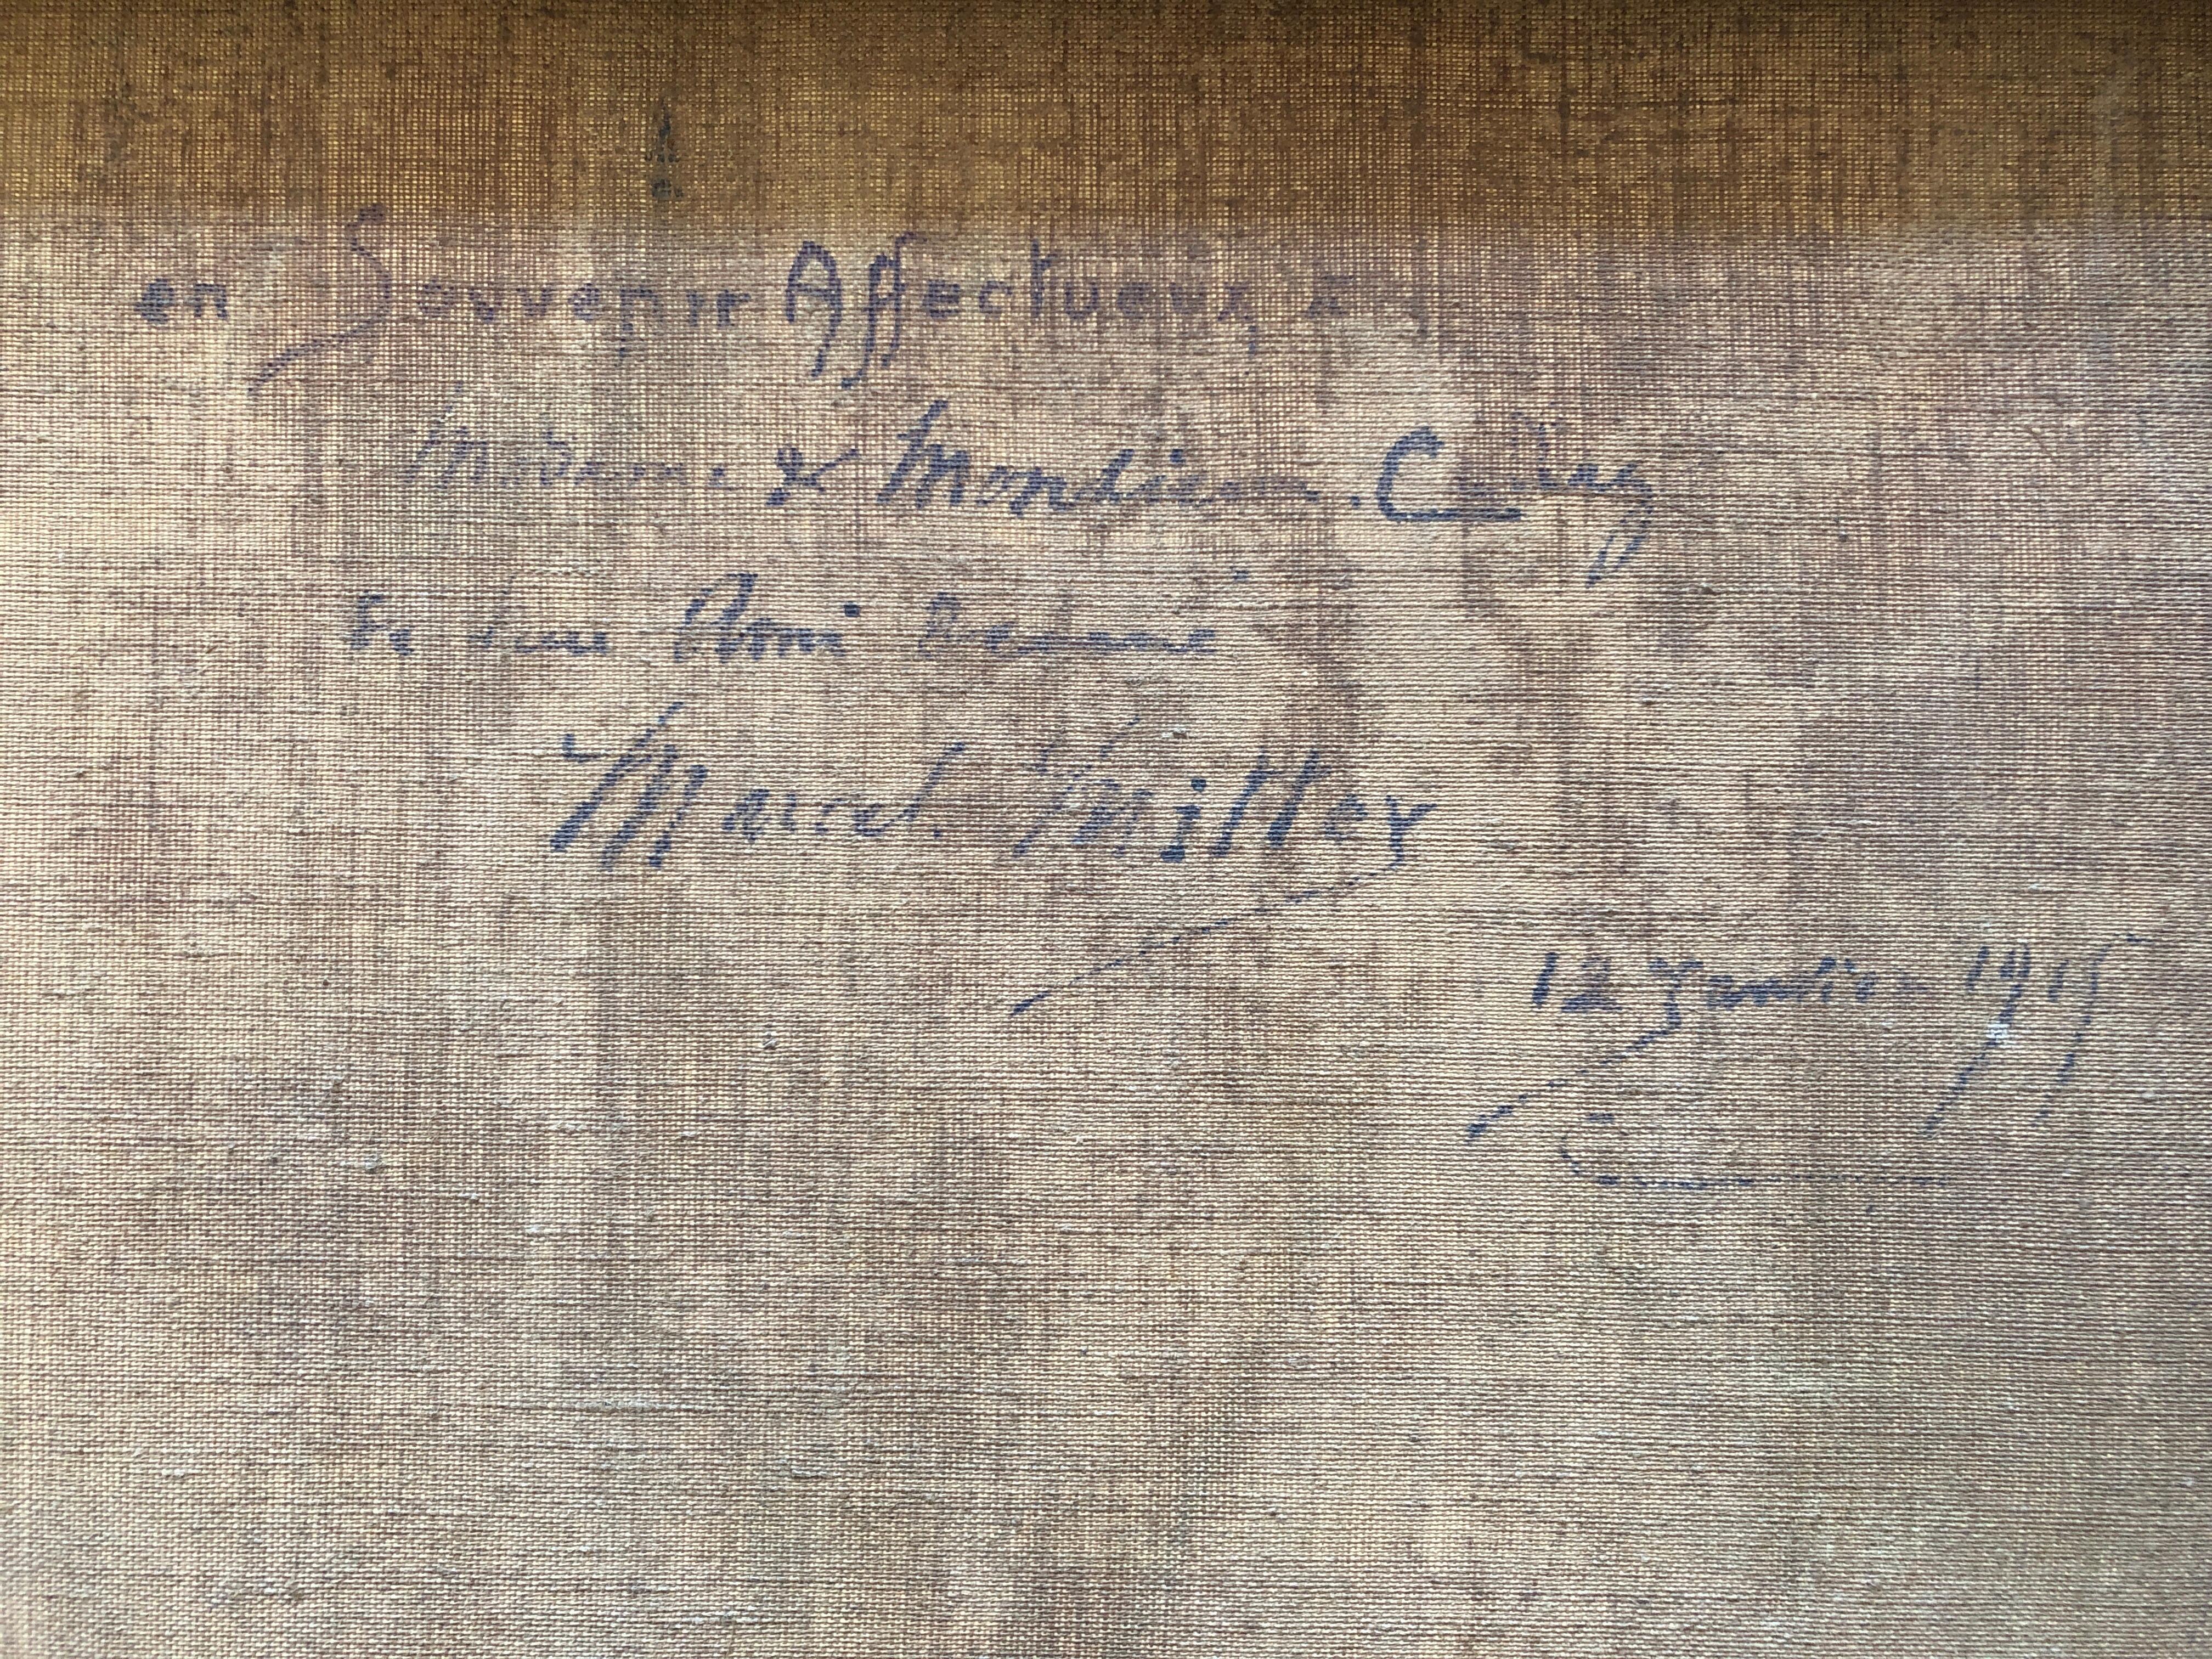 en Souvenir Affectueux à
Madame & Monsieur
De Leur Ami Devoué
Marcel Milley
12 Janvier 1915